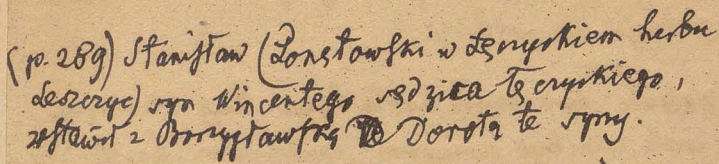 (p. 289) Stanisław (Łonętowski w Łęczyckiem herbu
Leszczyc) syn Wincentego sędzica łęczyckiego,
zostawił z Dorotą te syny.